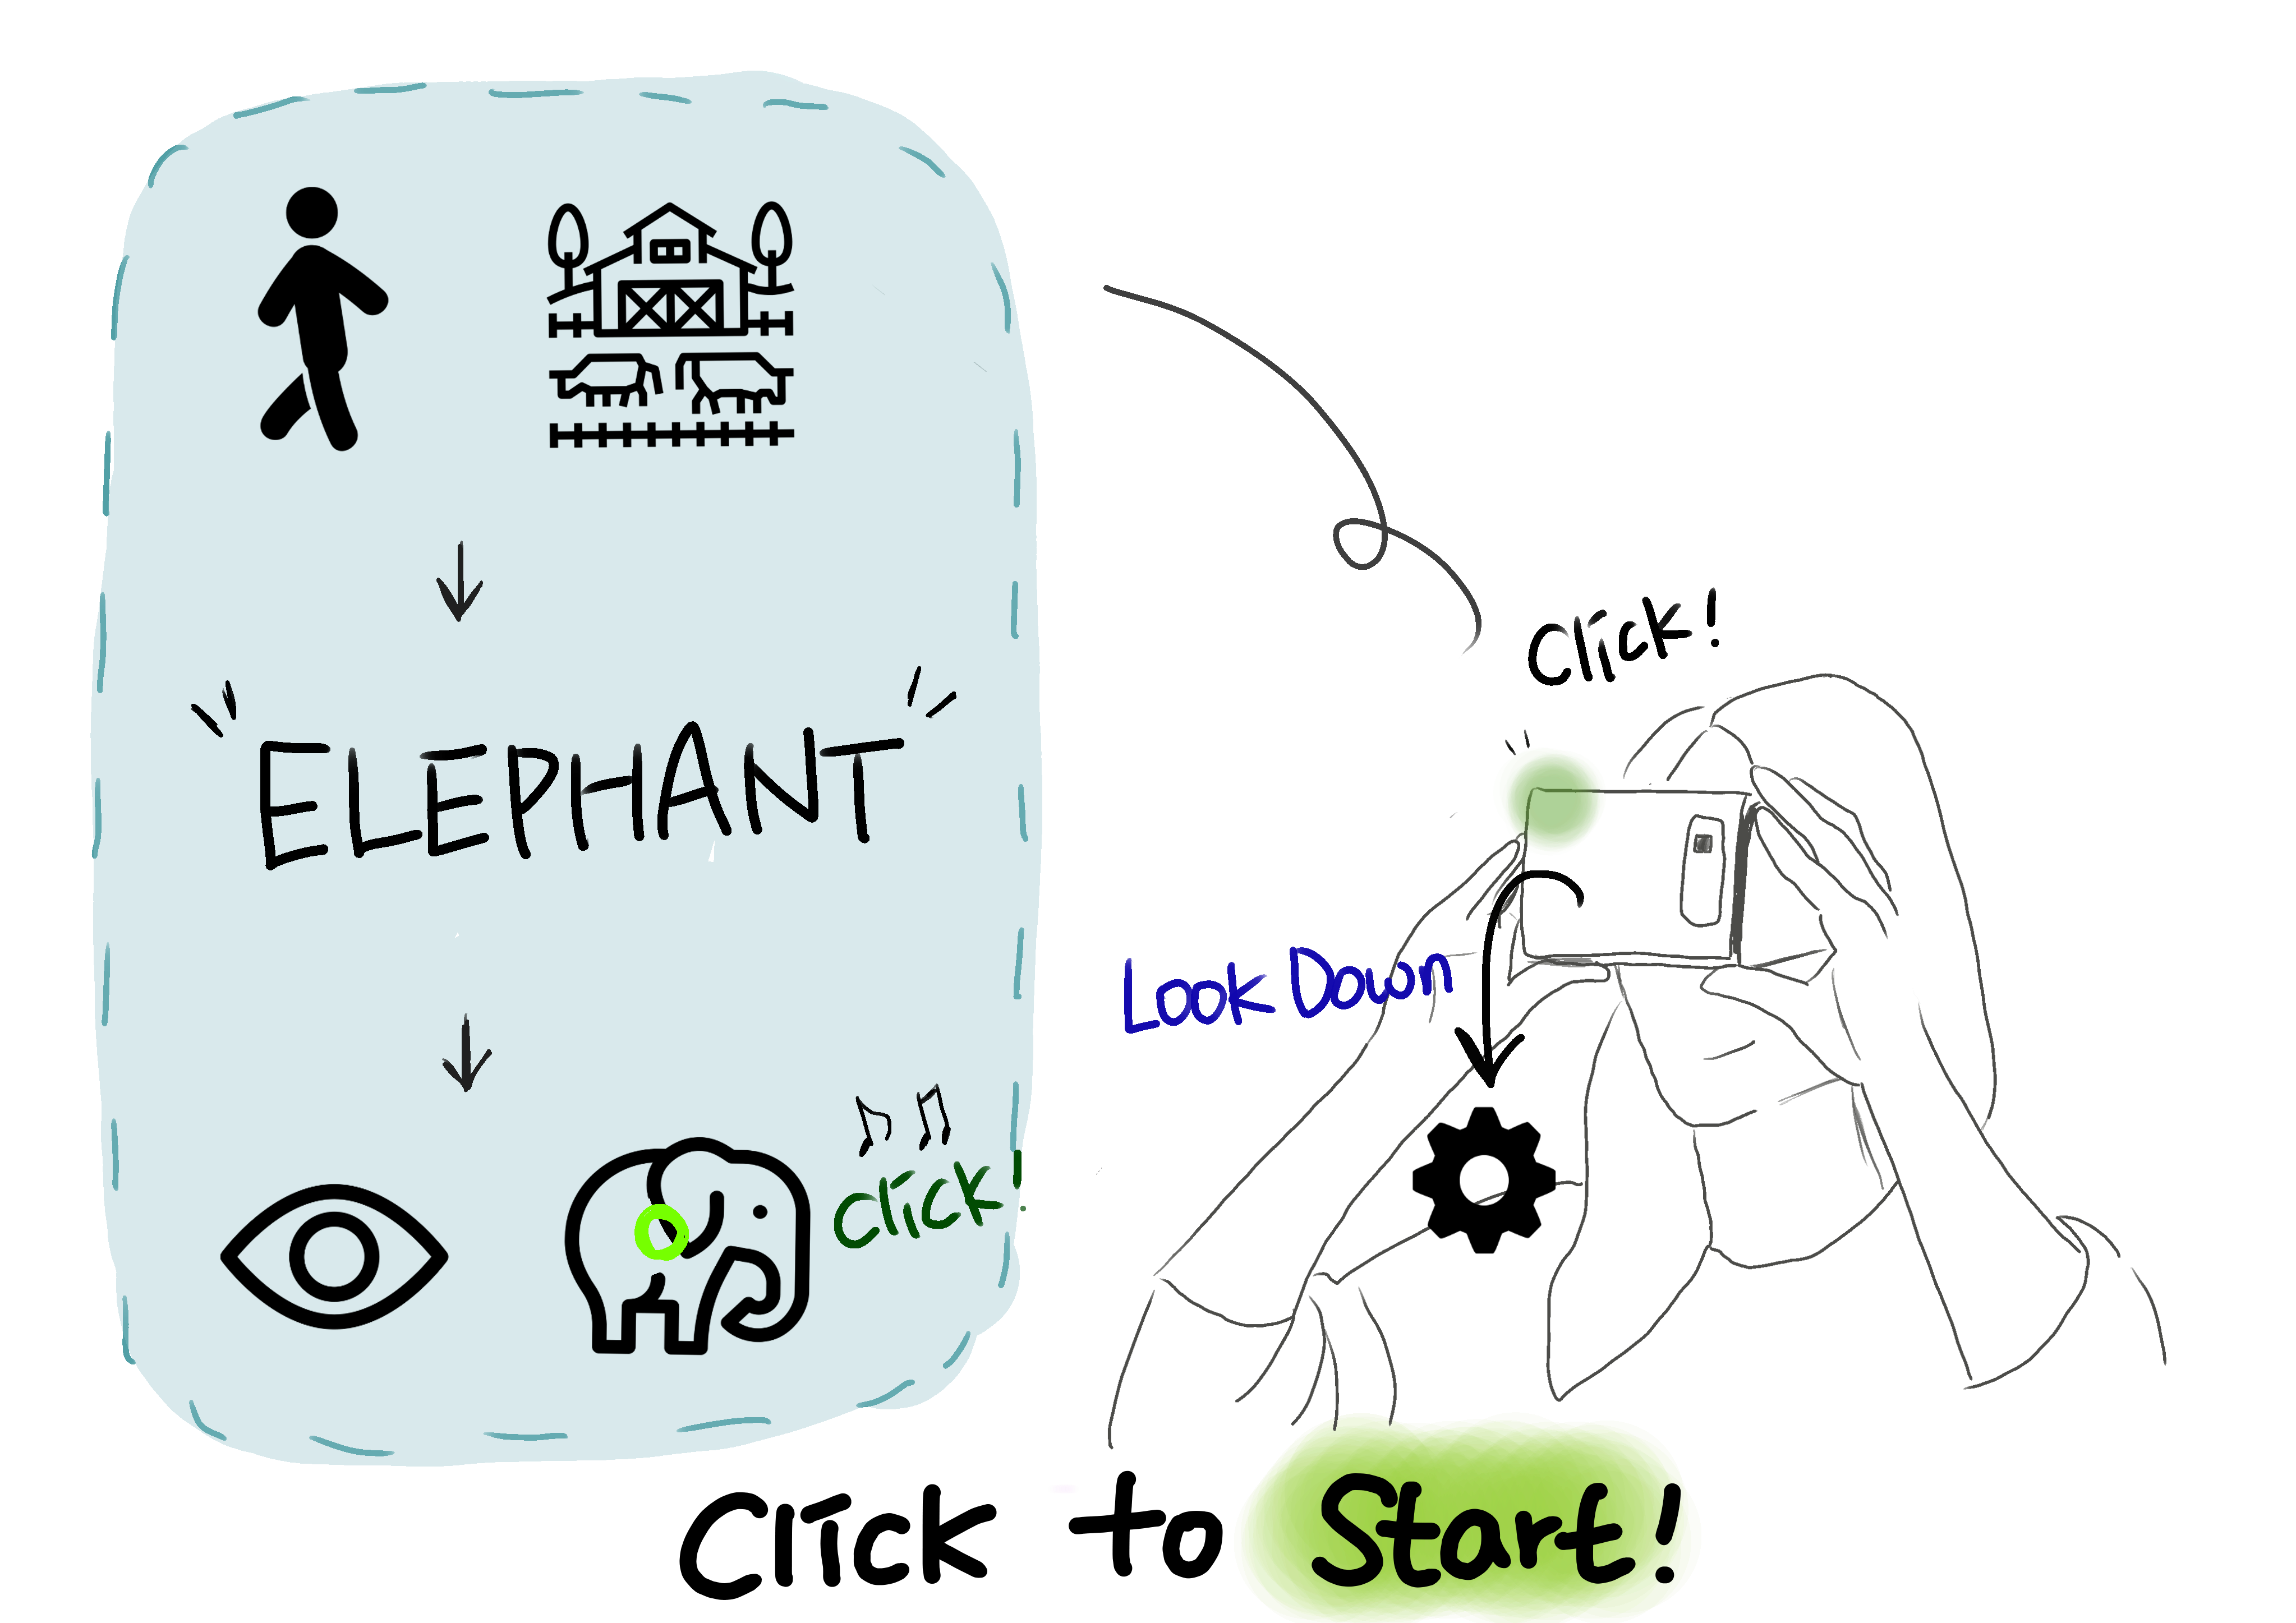 ELEPHANT
click!
Click!
Look Down
Click to Start!